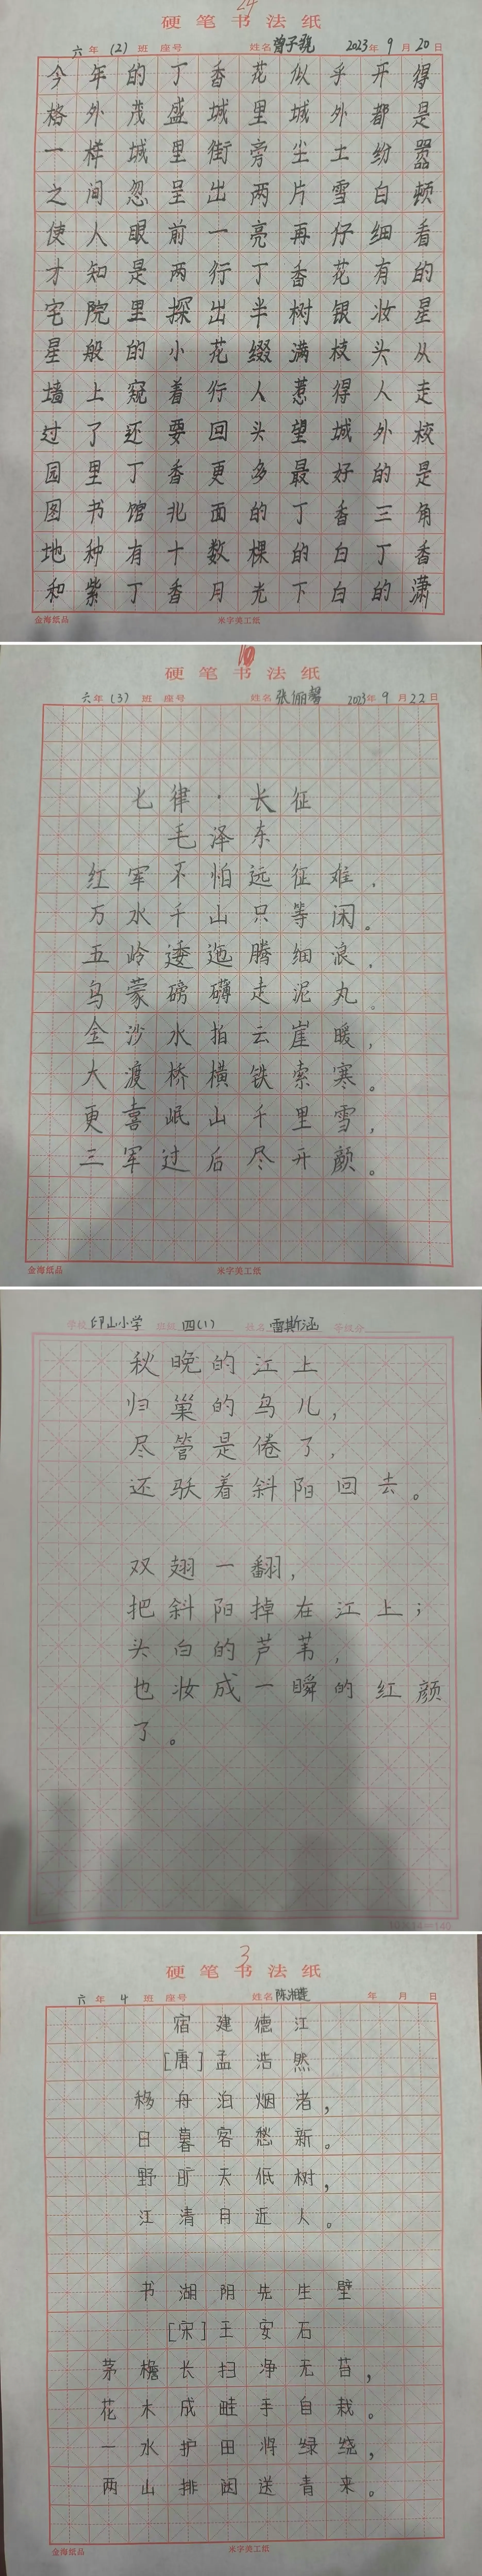 24
硬笔书法纸
六年(2)班 座号 姓名 曾子 2023年9月20日
今年的丁香花似乎开得
格外茂盛城里城外都是
一样城里街旁尘土纷嚣
之间忽呈出两片雪白顿
使人眼前一亮再仔细看
才知是两行丁香花有的
宅院里探出半树银妆星
星般的小花缀满枝头从
墙上窥着行人惹得人走
过了还要回头望城外校
园里丁香更多最好的是
图书馆北面的丁香三角
地种有十数棵的白丁香
和紫丁香月光下白的潇
金海纸品 米字美工纸
10
硬笔书法纸
六年(3)班 座号 姓名 张俪馨 2023年9月22日
七律·长征
毛泽东
红军不怕远征难,
万水千山只等闲。
五岭逶迤腾细浪,
乌蒙磅礴走泥丸。
金沙水拍云崖暖,
大渡桥横铁索寒。
更喜岷山千里雪,
三军过后尽开颜。
金海纸品 米字美工纸
学校 印山小学 班级 四(1) 姓名 雷斯涵 等级分
秋晚的江上
归巢的鸟儿,
尽管是倦了,
还驮着斜阳回去。
双翅一翻,
把斜阳掉在江上;
头白的芦苇,
也妆成一瞬的红颜
了。
3
硬笔书法纸
六年4班 座号 姓名 陈湘莲 年 月 日
宿建德江
[唐]孟浩然
移舟泊烟渚,
日暮客愁新。
野旷天低树,
江清月近人。
书湖阴先生壁
[宋]王安石
茅檐长扫净无苔,
花木成畦手自栽。
一水护田将绿绕,
两山排闼送青来。
金海纸品 米字美工纸